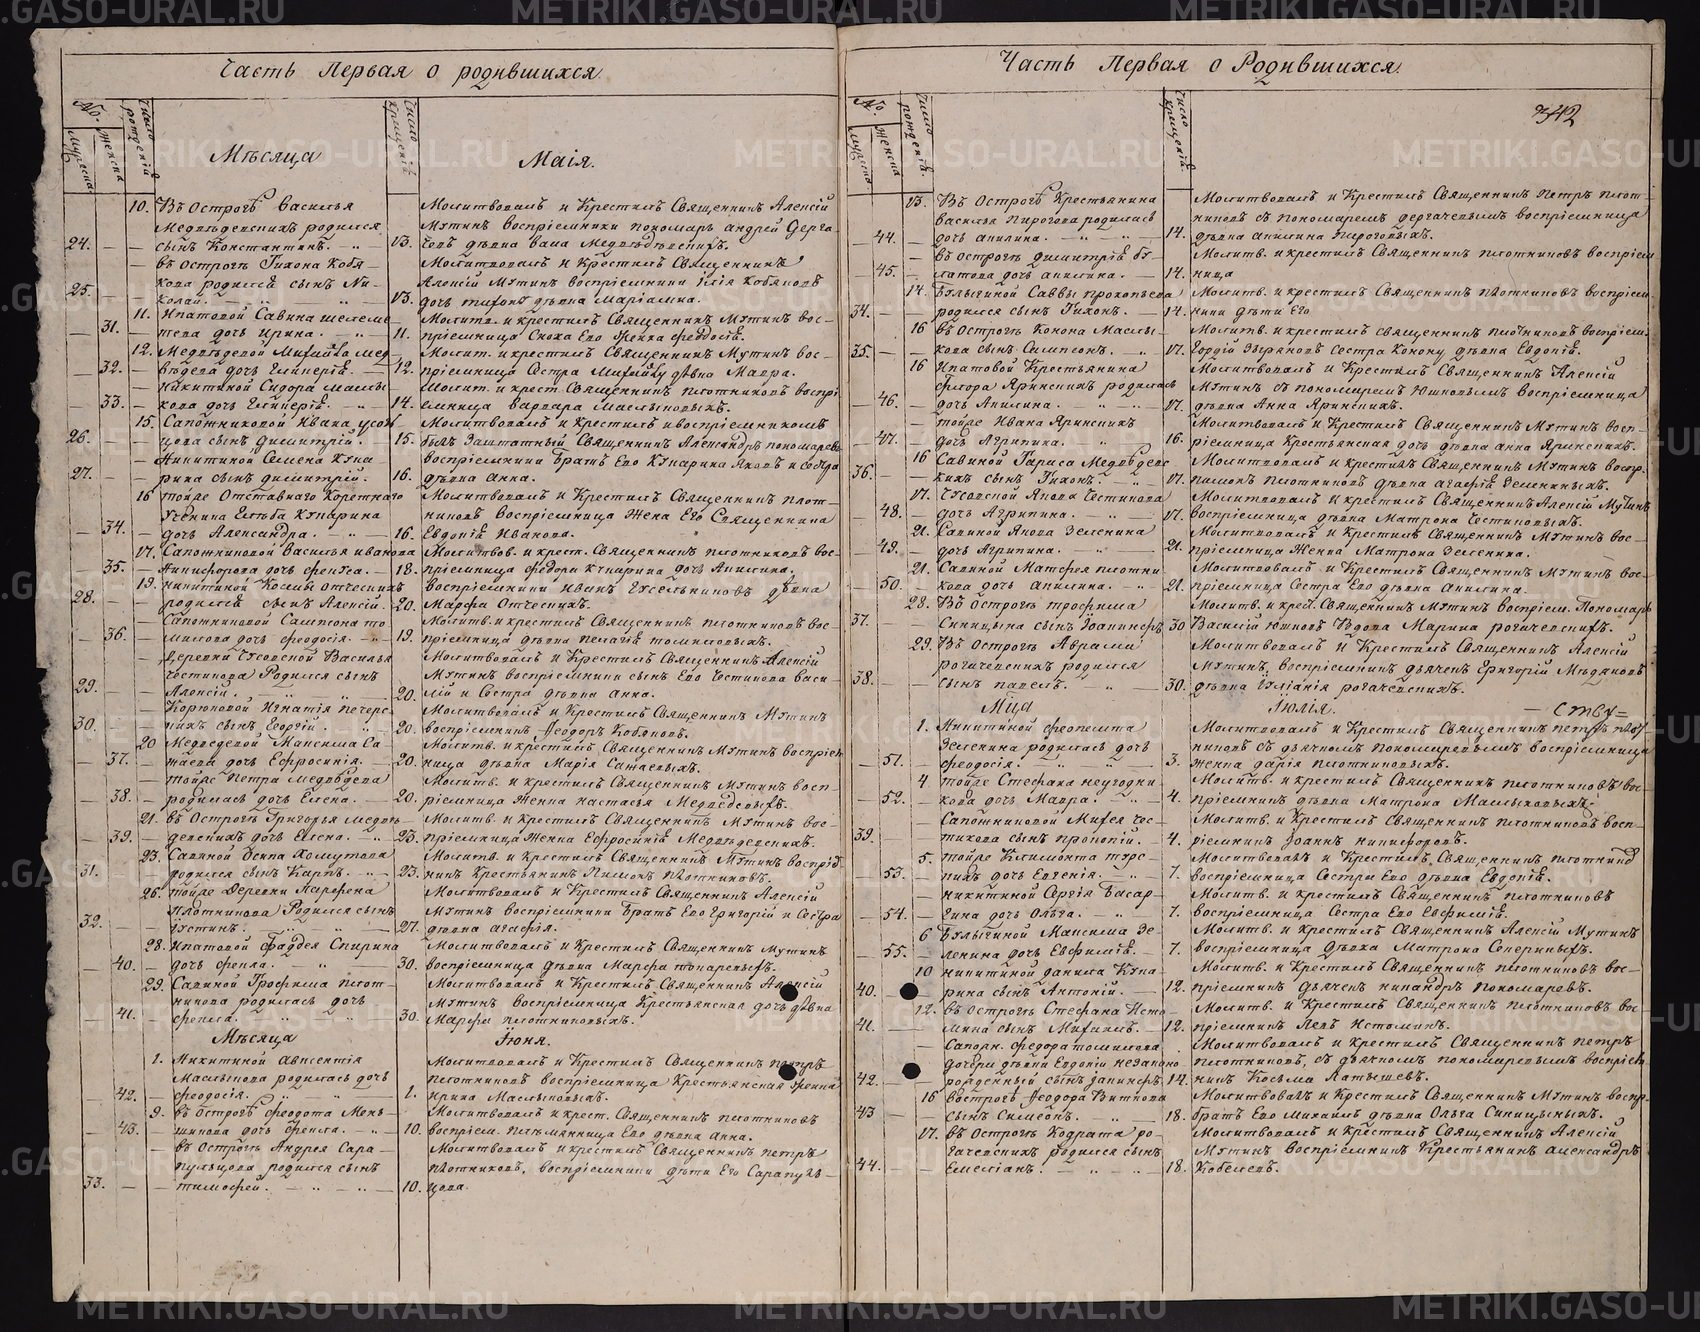 Часть Первая о родившихся.
№.
мужеска
женска
число рожденій
число крещеній
Мѣсяца
Маія.
10. Въ Острогѣ Василья
Медвѣдевскихъ родился
24. — — сынъ Константинъ. — 13.
Молитвовалъ и Крестилъ Священникъ Алексій
Мутинъ воспріемники пономарь андрей
дѣвка
— въ острогѣ Тихона Кобя—
25. кова родился сынъ Ни—
колай. 13.
Молитвовалъ и Крестилъ Священникъ
Алексій Мутинъ воспріемники Кобяковъ
дочь дѣвка Маріамна.
11. Ипатовой Савина шелеме—
31. — тева дочь Ирина. — 11.
Молитв. и крестилъ Священникъ Мутинъ вос—
пріемница Сноха Его
12. Медвѣдевой Михайла мед—
32. — вѣдева дочь Гликерія. — 12.
Молит. и крестилъ Священникъ Мутинъ вос—
пріемница Сестра Михайлу дѣвка Мавра.
— никитиной Сидора маслы—
33. — кова дочь Гликерія. — 14.
Молит. и крест. Священникъ плотниковъ воспрі—
емница Варвара Маслыковыхъ.
15. Сапожниковой Ивана
26. — цова сынъ димитрій. 15.
Молитвовалъ и Крестилъ и воспріемникомъ
былъ Заштатный Священникъ Александръ пономаревъ
— Никитиной Семена Купа—
27. — рина сынъ димитрій. 16.
воспріемники Братъ Его Купарина Яковъ и сестра
дѣвка анна.
16 тойже Отставнаго
Купарина
34. — дочь Александра. — 16.
Молитвовалъ и Крестилъ Священникъ плот—
никовъ Воспріемница Жена Его Священника
Евдокія Иванова.
17. Сапожниковой Василья иванова
35. — Никифорова дочь фекла. — 18.
Молитвов. и крест. Священникъ плотниковъ вос—
пріемница федора Купарина дочь Акилина.
19. никитиной Козмы отческихъ
28. — родился сынъ Алексій. — 20.
воспріемники дѣвка
Марфа Отческихъ.
— Сапожниковой Сампсона то—
36. — милова дочь феодосія. — 19.
Молитв. и крестилъ Священникъ плотниковъ вос—
пріемница дѣвка пелагія томиловыхъ.
— деревни Чусовской Василья
Честикова Родился сынъ
29. — Алексій. — 20.
Молитвовалъ и Крестилъ Священникъ Алексій
Мутинъ воспріемники сынъ Его Честикова Васи—
лій и Сестра дѣвка анна.
— Корюковой Игнатія печер—
30. — скихъ сынъ Георгій. 20.
Молитвовалъ и Крестилъ Священникъ Мутинъ
воспріемникъ Феодоръ Кобяковъ.
20 Медведевой Максима Са—
37. — жаева дочь Евфросинія. — 20.
Молитв. и крестилъ Священникъ Мутинъ воспріем—
ница дѣвка Марія Сажаевыхъ.
— тойже Петра медвѣдева
38. — родилась дочь Елена. — 20.
Молитв. и крестилъ Священникъ Мутинъ восп—
ріемница Женка настасья Медведевыхъ.
21. въ Острогѣ Григорья медвѣ—
39. — девскихъ дочь Елена. — 23.
Молитв. и Крестилъ Священникъ Мутинъ вос—
пріемница Женка Евфросинія Медвѣдевскихъ.
23. Савиной Осипа Хомутова
31. — родился сынъ Карпъ. — 23.
Молитв. и крестилъ Священникъ Мутинъ воспріем—
никъ Крестьянинъ Пимонъ плотниковъ.
26. тойже Деревни Парфена
Плотникова Родился сынъ
32. — Іустинъ. — 27.
Молитвовалъ и Крестилъ Священникъ Алексій
Мутинъ воспріемники Братъ Его Григорій и Сестра
дѣвка агафія.
28. Ипатовой фаддея Спирина
40. — дочь фекла. — 30.
Молитвовалъ и Крестилъ Священникъ Мутинъ
воспріемница дѣвка Марфа
29. Савиной Трофима плот—
никова родилась дочь
41. — фекла. — 30.
Молитвовалъ и Крестилъ Священникъ Алексій
Мутинъ воспріемница Крестьянская дочь дѣвка
Марфа плотниковыхъ.
Мѣсяца
Іюня.
1. Никитиной авксентія
Маслыкова родилась дочь
42. — феодосія. — 1.
Молитвовалъ и Крестилъ Священникъ петръ
плотниковъ воспріемница Крестьянская женка
ирина Маслыковыхъ.
9. въ острогѣ феодота Мень—
43. — шикова дочь фекла. — 10.
Молитвовалъ и крест. Священникъ плотниковъ
воспріем. племянница Его дѣвка анна.
— въ Острогѣ Андрея Сара—
пульцова родился сынъ
33. — тимофей. — 10.
Молитвовалъ и крестилъ Священникъ петръ
плотниковъ, воспріемники дѣти Его Сарапуль—
цова.
Часть Первая о Родившихся.
342
№.
мужеска
женска
число рожденій
число крещеній
13. Въ Острогѣ Крестьянина
василья пирогова родилась
44. — дочь акилина. — 14.
Молитвовалъ и Крестилъ Священникъ Петръ плот—
никовъ съ пономаремъ дергачевымъ воспріемница
дѣвка акилина пироговыхъ.
— въ острогѣ димитрія бу—
45. — латова дочь акилина. — 14.
Молитв. и крестилъ Священникъ плотниковъ воспріем—
ница
14. Булыгиной Саввы прокопьева
34. — родился сынъ Тихонъ. — 14.
Молитв. и крестилъ Священникъ плотниковъ воспріем—
ники дѣти Его
16 въ Острогѣ Конона Маслы—
35. — кова сынъ Сампсонъ. — 17.
Молитв. и крестилъ священникъ плотниковъ воспріем.
Гордій Зыряновъ Сестра Конону дѣвка Евдокія.
16 Ипатовой Крестьянина
флора Яринскихъ родилась
46. — дочь Акилина. — 17.
Молитвовалъ и Крестилъ Священникъ Алексій
Мутинъ съ пономаремъ Юшковымъ воспріемница
дѣвка Анна Яринскихъ.
— тойже Ивана Яринскихъ
47. — дочь Агрипина. — 16.
Молитвовалъ и Крестилъ Священникъ Мутинъ восп—
ріемница Крестьянская дочь дѣвка анна Яринскихъ.
16 Савиной Тариса Медвѣдевс—
36. — кихъ сынъ Тихонъ. — 17.
Молитвовалъ и крестилъ Священникъ Мутинъ воспр.
пимонъ плотниковъ дѣвка агафія Зеленкиныхъ.
17. Чусовской Якова Честикова
48. — дочь Агрипина. — 17.
Молитвовалъ и Крестилъ Священникъ Алексій Мутинъ
воспріемница дѣвка Матрона Честиковыхъ.
21. Савиной Якова Зеленина
49. — дочь Агрипина. — 21.
Молитвовалъ и Крестилъ Священникъ Мутинъ вос—
пріемница Женка Матрона Зеленина.
21. Савиной Матфея плотни—
50. — кова дочь акилина. — 21.
Молитвовалъ и Крестилъ Священникъ Мутинъ вос—
пріемница Сестра Его дѣвка Акилина.
28. Въ Острогѣ трофима
37. — Синицына сынъ Іоанникій 30
Молитв. и крест. Священникъ Мутинъ воспріем. Пономарь
Василій юшковъ Вдова Марина рогачевскихъ.
29. Въ Острогѣ Аврама
рогачевскихъ родился
38. — сынъ павелъ. — 30.
Молитвовалъ и Крестилъ Священникъ Алексій
Мутинъ, воспріемникъ дьячекъ Григорій Мѣдяковъ
дѣвка Іуліанія рогачевскихъ.
Мца
Іюлія.
1. Никитиной феопемпта
Зеленина родилась дочь
51. — феодосія. — 3.
Молитвовалъ и Крестилъ Священникъ петръ плот—
никовъ съ дьячкомъ пономаревымъ воспріемница
женка дарія плотниковыхъ.
4 тойже Стефана неугодни—
52. — кова дочь Мавра. — 4.
Молитв. и крестилъ Священникъ плотниковъ вос—
пріемникъ дѣвка Матрона Маслыковыхъ.
— Сапожниковой Мокея чес—
39. — тикова сынъ прокопій. — 4.
Молитв. и Крестилъ Священникъ плотниковъ восп—
ріемникъ Іоаннъ никифоровъ.
5. тойже Климонта турс—
53. — кихъ дочь Евгенія. — 7.
Молитвовалъ и Крестилъ, Священникъ плотниковъ
воспріемница Сестра Его дѣвка Евдокія.
— никитиной Сергія Басар—
54. — гина дочь Ольга. — 7.
Молитв. и крестилъ Священникъ плотниковъ
воспріемница Сестра Его Евфимія.
6 Булыгиной Максима Зе—
55. — ленина дочь Евфимія. — 7.
Молитв. и крестилъ Священникъ Алексій Мутинъ
воспріемница дѣвка Матрона
10 никитиной данила Купа—
40. — рина сынъ Антоній. — 12.
Молитв. и Крестилъ Священникъ плотниковъ вос—
пріемникъ дьячекъ никандръ пономаревъ.
12. въ Острогѣ Стефана Исто—
41. — мина сынъ Михаилъ. — 12.
Молитв. и Крестилъ Священникъ плотниковъ вос—
пріемникъ Левъ Истоминъ.
— Сапожн. федора томилова
дочери дѣвки Евдокіи незаконно
42. — рожденный сынъ Іакинфъ. 14.
Молитвовалъ и Крестилъ Священникъ петръ
плотниковъ, съ дьячкомъ пономаревымъ воспріем—
никъ Козьма Латышевъ.
16 Вострогѣ Феодора Виткова
43 — сынъ Симеонъ. — 18.
Молитвовалъ и Крестилъ Священникъ Мутинъ воспр.
братъ Его Михаилъ дѣвка Ольга Синицыныхъ.
17. въ Острогѣ Кодрата ро—
гачевскихъ родился сынъ
44. — Емеліанъ. — 18.
Молитвовалъ и Крестилъ Священникъ Алексій
Мутинъ Воспріемникъ Крестьянинъ александръ
Кобелевъ.
METRIKI.GASO-URAL.RU